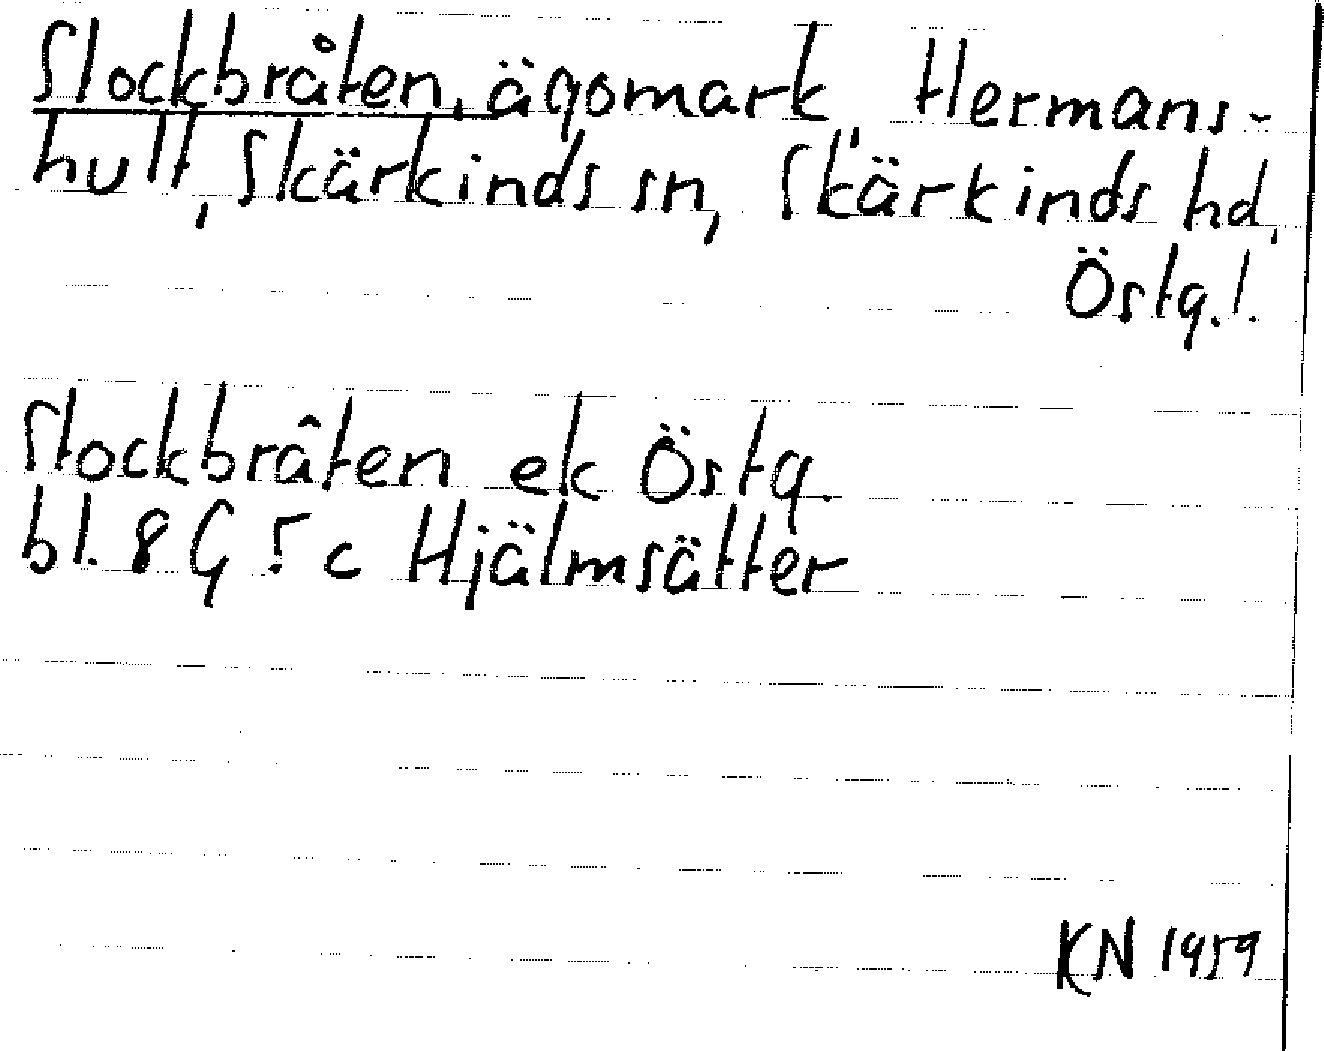 Stockbråten, ägomark, Hermans-
hult, Skärkinds sn, Skärkinds hd,
Östg. l.
Stockbråten ek Östg.
bl. 8 G 5 c Hjälmsätter
KN 1959